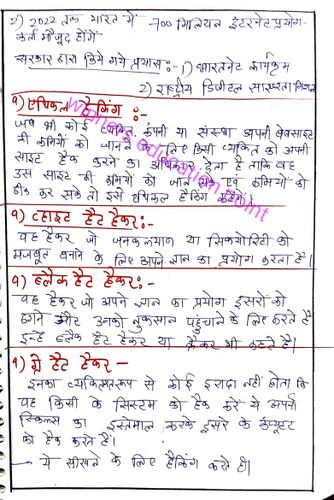 2) 2022 तक भारत में 700 मिलियन इंटरनेट प्रयोग-
कर्ता मौजूद होंगे
सरकार द्वारा किये गये प्रयास:- 1) भारतनेट कार्यक्रम
2) राष्ट्रीय डिजीटल साक्षरता मिशन
१) एथिकल हैकिंग :-
जब भी कोई व्यक्ति, कंपनी या संस्था अपनी वेबसाइट
की कमियों को जानने के लिए किसी व्यक्ति को अपनी
साइट हैक करने का अधिकार देता है ताकि वह
उस साइट की कमियों को जान सके एवं कमियों को
ठीक कर सके तो इसे एथिकल हैकिंग कहेंगे।
१) व्हाइट हैट हैकर:-
यह हैकर जो जनकल्याण या सिक्योरिटी को
मजबूत बनाने के लिए अपने ज्ञान का प्रयोग करता है।
१) ब्लैक हैट हैकर:-
यह हैकर जो अपने ज्ञान का प्रयोग दूसरों को
ठगने और उनको नुकसान पहुंचाने के लिए करते हैं
इन्हें ब्लैक हैट हैकर या क्रैकर भी कहते हैं।
१) ग्रे हैट हैकर -
इनका व्यक्तिगतरूप से कोई इरादा नहीं होता कि
यह किसी के सिस्टम को हैक करें ये अपनी
स्किल्स का इस्तेमाल करके दूसरे के कंप्यूटर
को हैक करते हैं।
- ये सीखने के लिए हैकिंग करते हैं।
education point